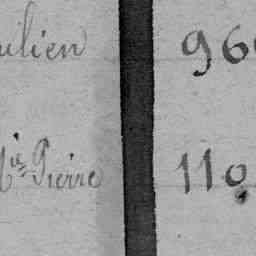 ulien 96
ie Pierre 110